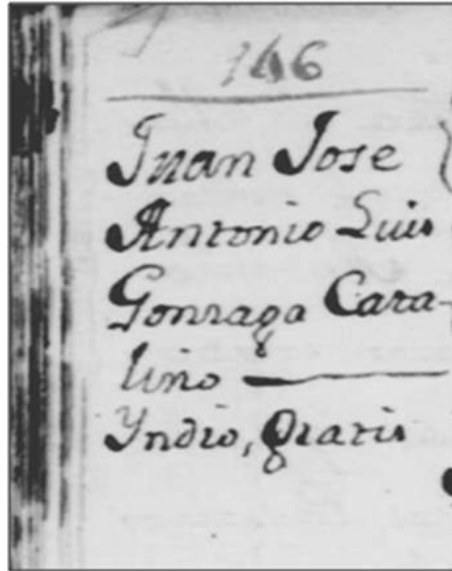 146
Juan Jose
Antonio Luis
Gonzaga Cata-
lino
Yndio, gratis